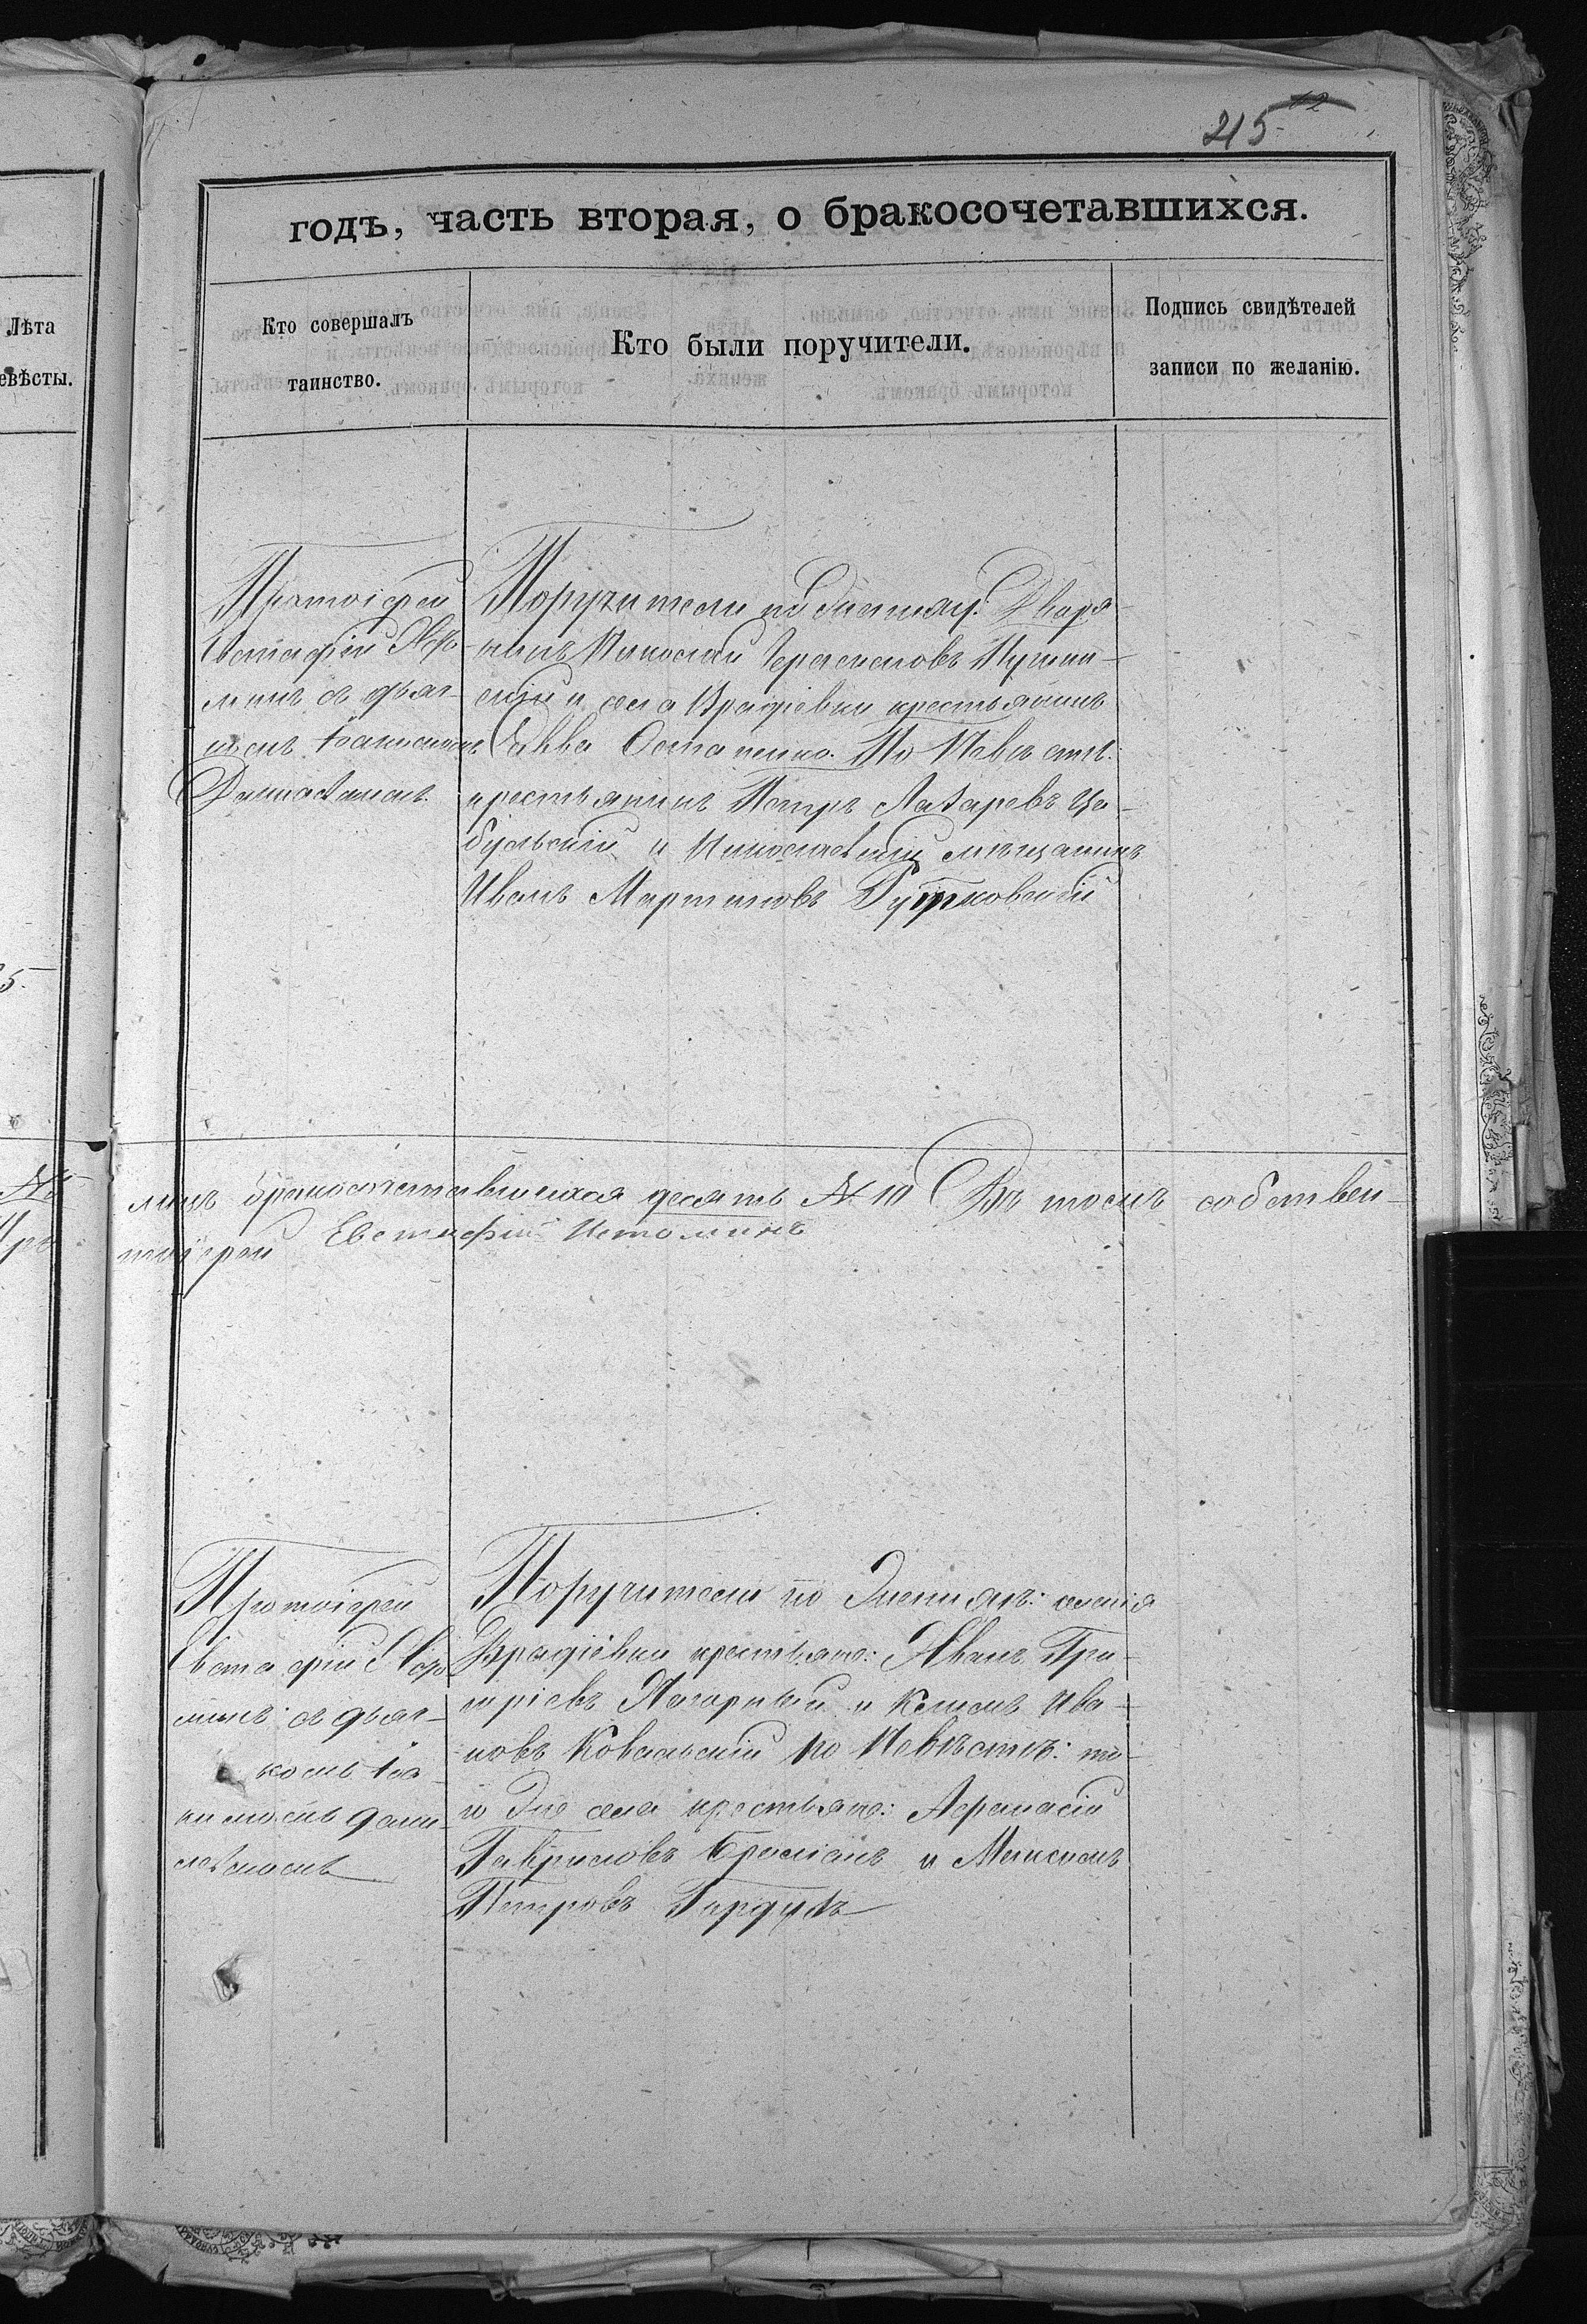 215
12
годъ, часть вторая, о бракосочетавшихся.
Лѣта
евѣсты.
Кто совершалъ
таинство.
Кто были поручители.
Подпись свидѣтелей
записи по желанію.
Протоіерей
Евстафій Исто-
минъ съ діак-
номъ
Поручители по Жениху: Дворя-
нинъ Николай Герасимовъ
и села Врадіевки крестьянинъ
Савва Остапенко. По Невѣстѣ:
крестьянинъ Петръ Лазаревъ Ца-
бульскій и Николаевскій мѣщанинъ
Иванъ Мартиновъ Рутковскій
5.
лицъ бракосочетавшихся десять № 10 Въ томъ собствен-
№
тоіерей Евстафій Истоминъ
Протоіерей
Евстафій Исто-
минъ съ діак-
комъ Іоа-
Поручители по Женихѣ: селенія
Врадіевки крестьяне: Иванъ Гри-
и Ива-
новъ Ковальскій по Невѣстѣ: то-
го же села крестьяне: Афанасій
Гавриловъ и Максимъ
Петровъ